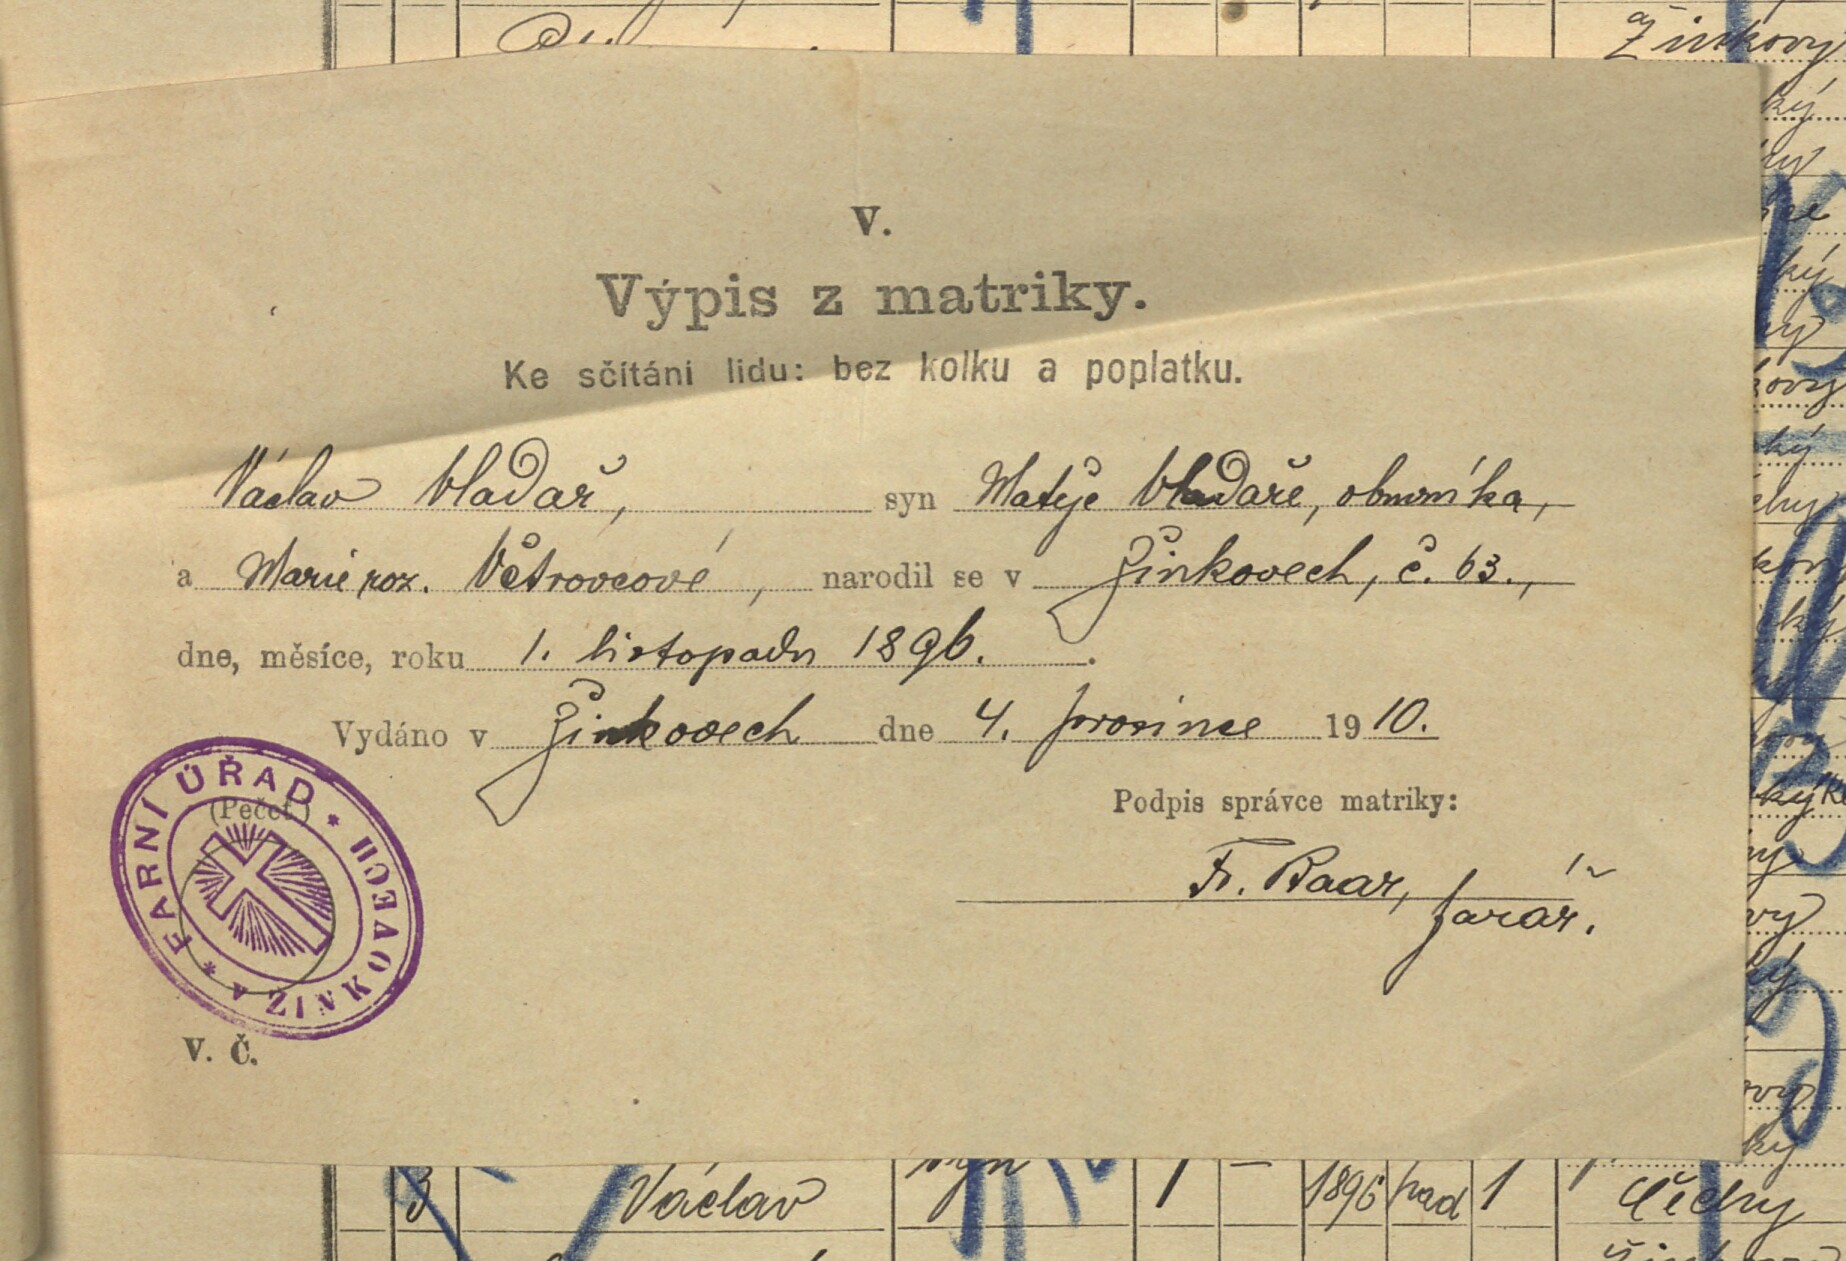 Žinkovy
V.
Výpis z matriky.
Ke sčítání lidu: bez kolku a poplatku.
Václav Vladař, syn Matěje Vladaře, obuvníka,
a Marie roz. Větrovcové, narodil se v Žinkovech, č. 63.,
dne, měsíce, roku 1. listopadu 1896.
Vydáno v Žinkovech dne 4. prosince 1910.
(Pečeť)
FARNÍ ÚŘAD * v ŽINKOVECH *
Podpis správce matriky:
Fr. Baar, farář.
V. Č.
3 Václav syn 1 – 1896 pad 1 Čechy